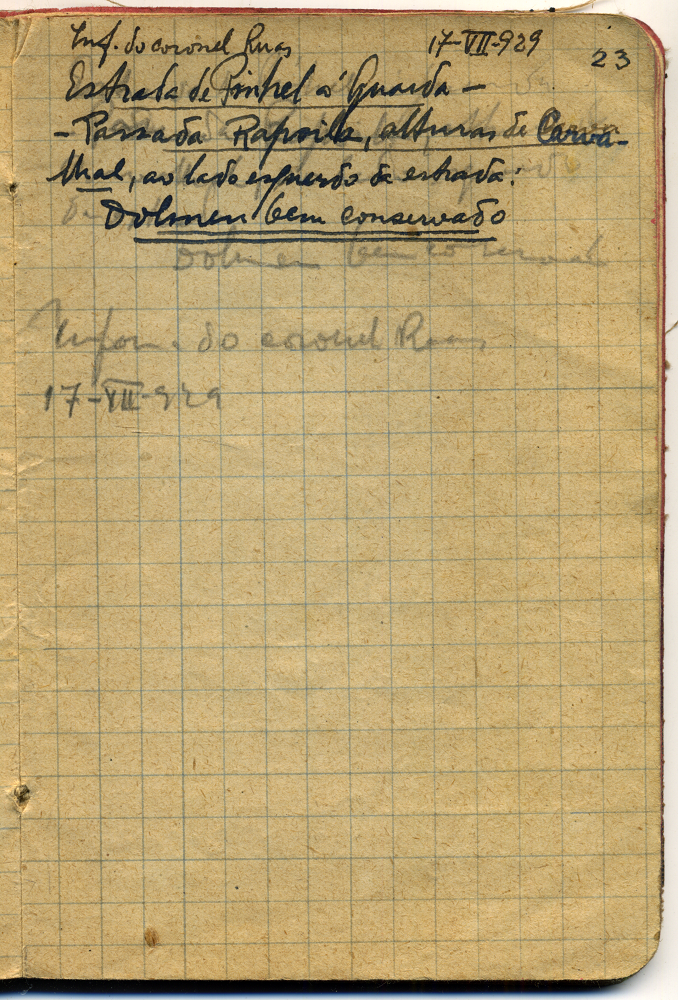 Inf. do coronel Ruas 17-VII-929
23
Estrada de Pinhel á Guarda -
- Passada Rapoila, alturas de Carva-
lhal, ao lado esquerdo da estrada:
Dolmen bem conservado
Dolmen bem conservado
Inform. do coronel Ruas
17-VII-929